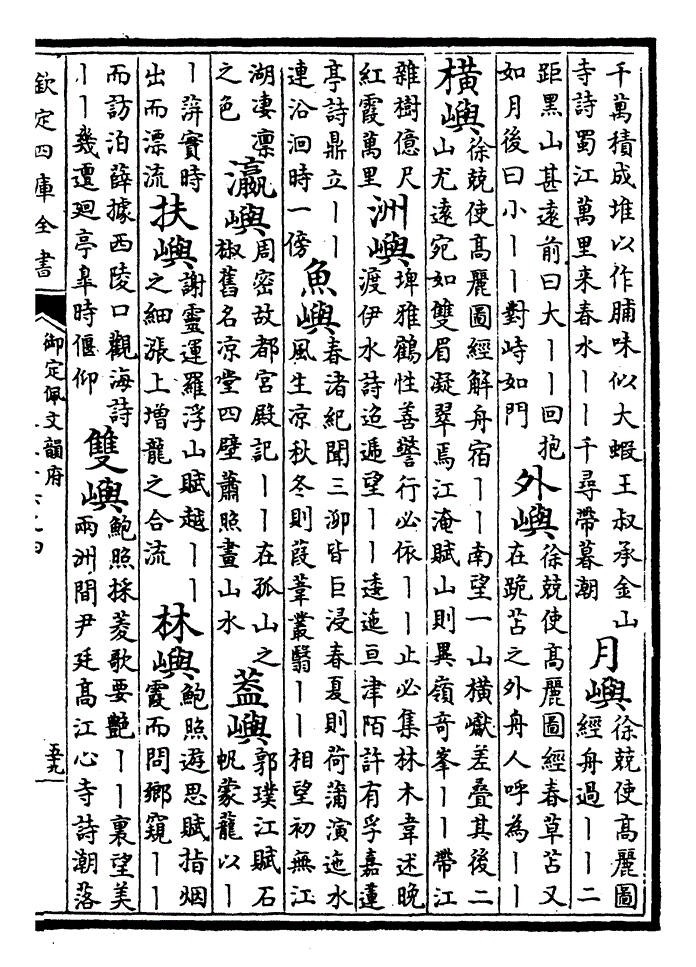 千萬積成堆以作脯味似大蝦王叔承金山
寺詩蜀江萬里来春水丨丨千尋帶暮潮
月嶼
徐兢使高麗圖
經舟過丨丨二
距黑山甚遠前曰大丨丨回抱
如月後曰小丨丨對峙如門
外嶼
徐兢使高麗圖經春草苫又
在跪苫之外舟人呼為丨丨
橫嶼
徐兢使高麗圖經解舟宿丨丨南望一山橫巘差疊其後二
山尤遠宛如雙眉凝翠焉江淹賦山則異嶺奇峯丨丨帶江
雜樹億尺
紅霞萬里
洲嶼
埤雅鶴性善警行必依丨丨止必集林木韋述晚
渡伊水詩迢遞望丨丨逶迤亘津陌許有孚嘉蓮
亭詩鼎立丨丨
連沿洄時一傍
魚嶼
春渚紀聞三泖皆巨浸春夏則荷蒲演迤水
風生凉秋冬則葭葦叢翳丨丨相望初無江
湖凄凛
之色
瀛嶼
周密故都宮殿記丨丨在孤山之
椒舊名凉堂四壁蕭照畫山水
葢嶼
郭璞江賦石
帆蒙籠以丨
丨蓱實時
出而漂流
扶嶼
謝靈運羅浮山賦越丨丨
之細漲上增龍之合流
林嶼
鮑照遊思賦指烟
霞而問鄉窺丨丨
而訪泊薛據西陵口觀海詩
丨丨幾遭廻亭臯時偃仰
雙嶼
鮑照採菱歌要艶丨丨裏望美
兩洲間尹廷高江心寺詩潮落
欽定四庫全書
御定佩文韻府
五九